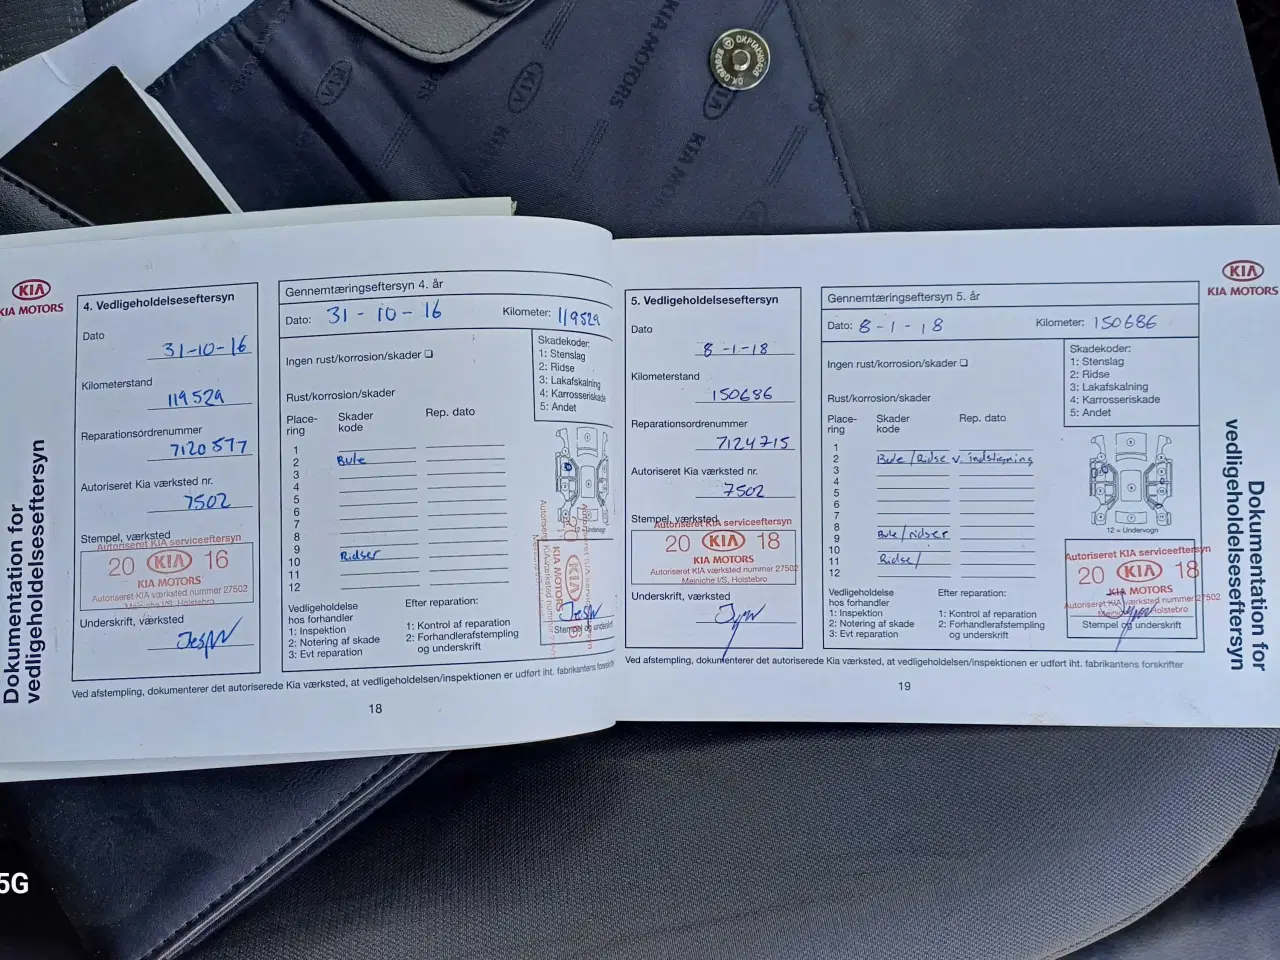 KIA MOTORS
KIA
KIA MOTORS
KIA
KIA MOTORS
KIA
KIA
KIA MOTORS
Dokumentation for
vedligeholdelseseftersyn
4. Vedligeholdelseseftersyn
Dato
31-10-16
Kilometerstand
119529
Reparationsordrenummer
7120577
Autoriseret Kia værksted nr.
7502
Stempel, værksted
Autoriseret KIA serviceeftersyn
20 KIA 16
KIA MOTORS
Autoriseret KIA værksted nummer 27502
Meiniche I/S, Holstebro
Underskrift, værksted
Gennemtæringseftersyn 4. år
Dato: 31-10-16 Kilometer: 119529
Ingen rust/korrosion/skader
Rust/korrosion/skader
Skadekoder:
1: Stenslag
2: Ridse
3: Lakafskalning
4: Karrosseriskade
5: Andet
Place-
ring
Skader
kode
Rep. dato
1
2 Bule
3
4
5
6
7
8
9
10 Ridser
11
12
12 = Undervogn
Vedligeholdelse
hos forhandler
1: Inspektion
2: Notering af skade
3: Evt reparation
Efter reparation:
1: Kontrol af reparation
2: Forhandlerafstempling
og underskrift
KIA
KIA MOTORS
Stempel og underskrift
Ved afstempling, dokumenterer det autoriserede Kia værksted, at vedligeholdelsen/inspektionen er udført iht. fabrikantens forskrifter
18
5. Vedligeholdelseseftersyn
Dato
8-1-18
Kilometerstand
150686
Reparationsordrenummer
7124715
Autoriseret Kia værksted nr.
7502
Stempel, værksted
Autoriseret KIA serviceeftersyn
20 KIA 18
KIA MOTORS
Autoriseret KIA værksted nummer 27502
Meiniche I/S, Holstebro
Underskrift, værksted
Gennemtæringseftersyn 5. år
Dato: 8-1-18 Kilometer: 150686
Ingen rust/korrosion/skader
Rust/korrosion/skader
Skadekoder:
1: Stenslag
2: Ridse
3: Lakafskalning
4: Karrosseriskade
5: Andet
Place-
ring
Skader
kode
Rep. dato
1
2 Bule/Ridse v. indstigning
3
4
5
6
7
8
9 Bule/ridser
10
11 Ridse/
12
12 = Undervogn
Vedligeholdelse
hos forhandler
1: Inspektion
2: Notering af skade
3: Evt reparation
Efter reparation:
1: Kontrol af reparation
2: Forhandlerafstempling
og underskrift
Autoriseret KIA serviceeftersyn
20 KIA 18
KIA MOTORS
Autoriseret KIA værksted nummer 27502
Holstebro
Stempel og underskrift
Ved afstempling, dokumenterer det autoriserede Kia værksted, at vedligeholdelsen/inspektionen er udført iht. fabrikantens forskrifter
19
KIA
KIA MOTORS
Dokumentation for
vedligeholdelseseftersyn
5G